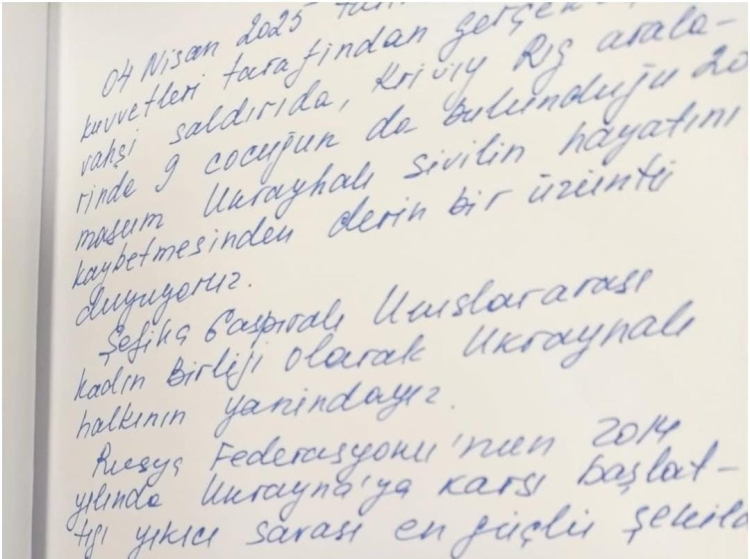 04 Nisan 2025
kuvvetleri tarafından
vahşi saldırıda, Kriviy Rig arala-
rinde 9 cocuğun da bulunduğu 20
masum Ukraynalı sivilin hayatını
kaybetmesinden derin bir üzüntü
duyuyoruz.
Şefika Gaspıralı Uluslararası
kadın Birliği olarak Ukraynalı
halkının yanındayız.
Rusya Federasyonu'nun 2014
yılında Ukrayna'ya karşı başlat-
tığı yıkıcı savaşı en güçlü şekild